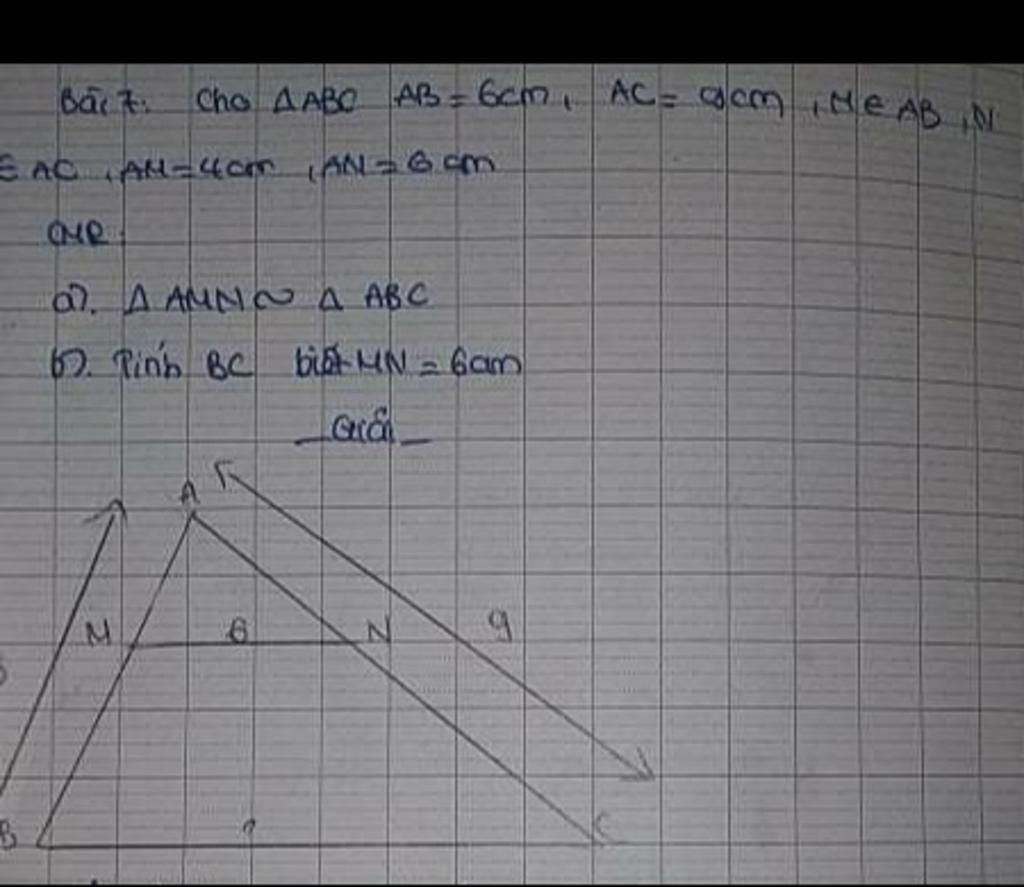 Bài 7: Cho ΔABC AB = 6cm, AC = 9cm, M ∈ AB, N
∈ AC, AM = 4cm, AN = 6cm
CMR
a). Δ AMN ~ Δ ABC
b). Tính BC biết MN = 6cm
_Giải_
A
M 6 N 9
B ? C